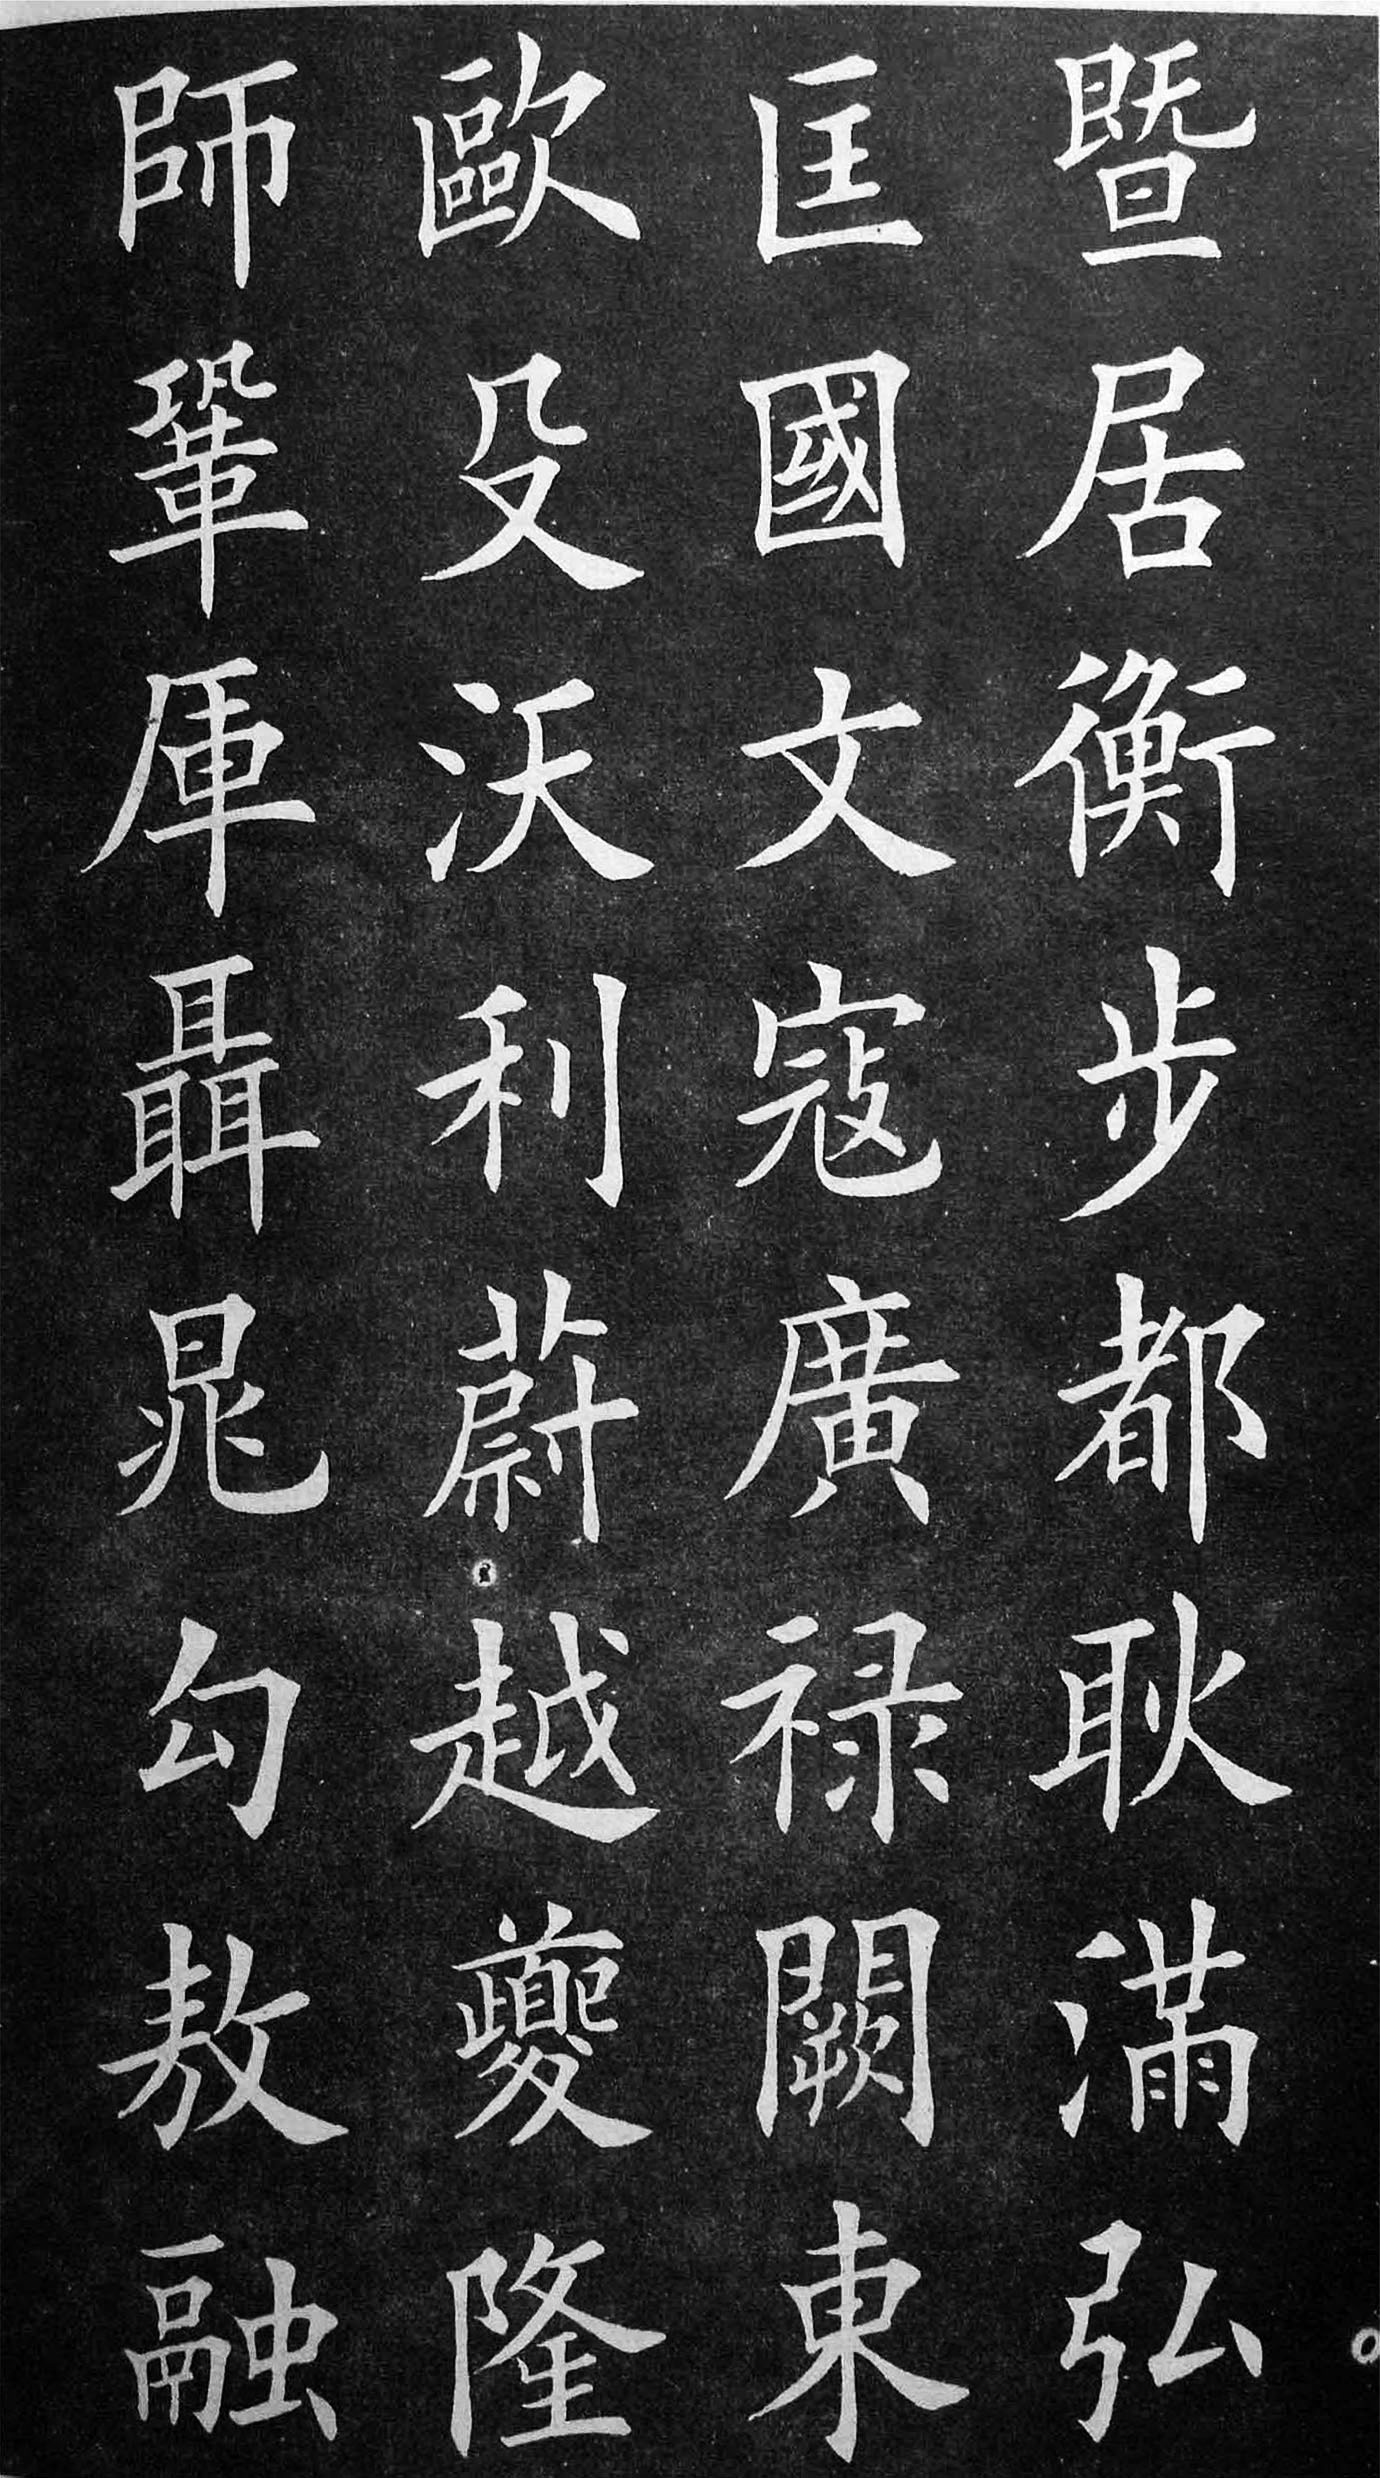 暨居衡步都耿滿弘
匡國文寇廣禄闕東
歐殳沃利蔚越夔隆
師鞏厙聶晁勾敖融